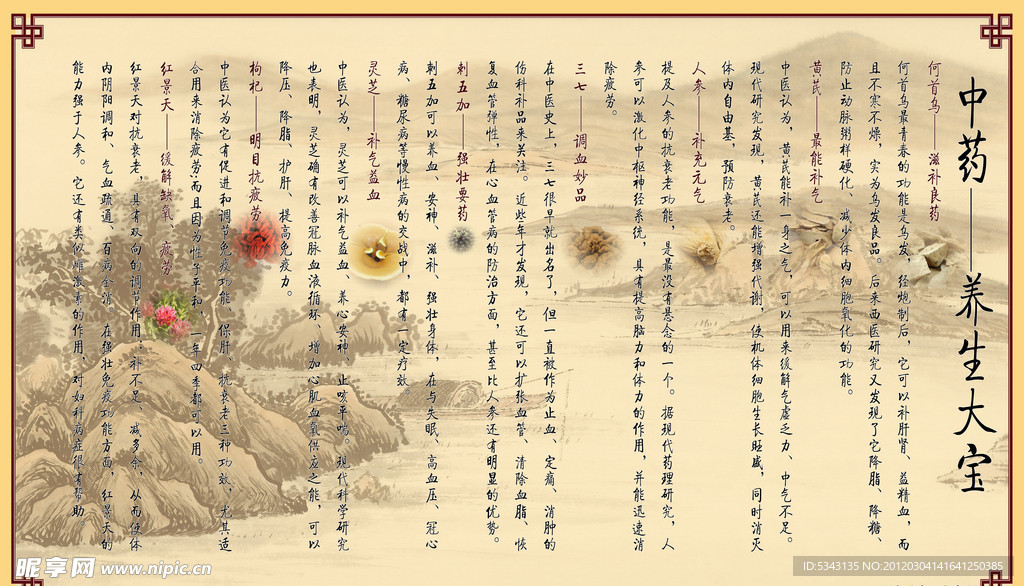 中药——养生大宝
何首乌——滋补良药
何首乌最青春的功能是乌发，经炮制后，它可以补肝肾、益精血，而
且不寒不燥，实为乌发良品。后来西医研究又发现了它降脂、降糖、
防止动脉粥样硬化、减少体内细胞氧化的功能。
黄芪——最能补气
中医认为，黄芪能补一身之气，可以用来缓解气虚乏力、中气不足。
现代研究发现，黄芪还能增强代谢，使机体细胞生长旺盛，同时消灭
体内自由基，预防衰老。
人参——补充元气
提及人参的抗衰老功能，是最没有悬念的一个。据现代药理研究，人
参可以激化中枢神经系统，具有提高脑力和体力的作用，并能迅速消
除疲劳。
三七——调血妙品
在中医史上，三七很早就出名了，但一直被作为止血、定痛、消肿的
伤科补品来关注。近些年才发现，它还可以扩张血管、清除血脂、恢
复血管弹性，在心血管病的防治方面，甚至比人参还有明显的优势。
刺五加——强壮要药
刺五加可以养血、安神、滋补、强壮身体，在与失眠、高血压、冠心
病、糖尿病等慢性病的交战中，都有一定疗效。
灵芝——补气益血
中医认为，灵芝可以补气益血、养心安神、止咳平喘。现代科学研究
也表明，灵芝确有改善冠脉血液循环、增加心肌血氧供应之能，可以
降压、降脂、护肝、提高免疫力。
枸杞——明目抗疲劳
中医认为它有促进和调节免疫功能、保肝、抗衰老三种功效，尤其适
合用来消除疲劳；而且因为性子平和，一年四季都可以用。
红景天——缓解缺氧、疲劳
红景天对抗衰老，具有双向的调节作用：补不足、减多余，从而使体
内阴阳调和、气血疏通、百病全消。在强壮免疫功能方面，红景天的
能力强于人参。它还有类似雌激素的作用，对妇科病症很有帮助
昵享网 www.nipic.cn
ID:5343135 NO:20120304141641250385